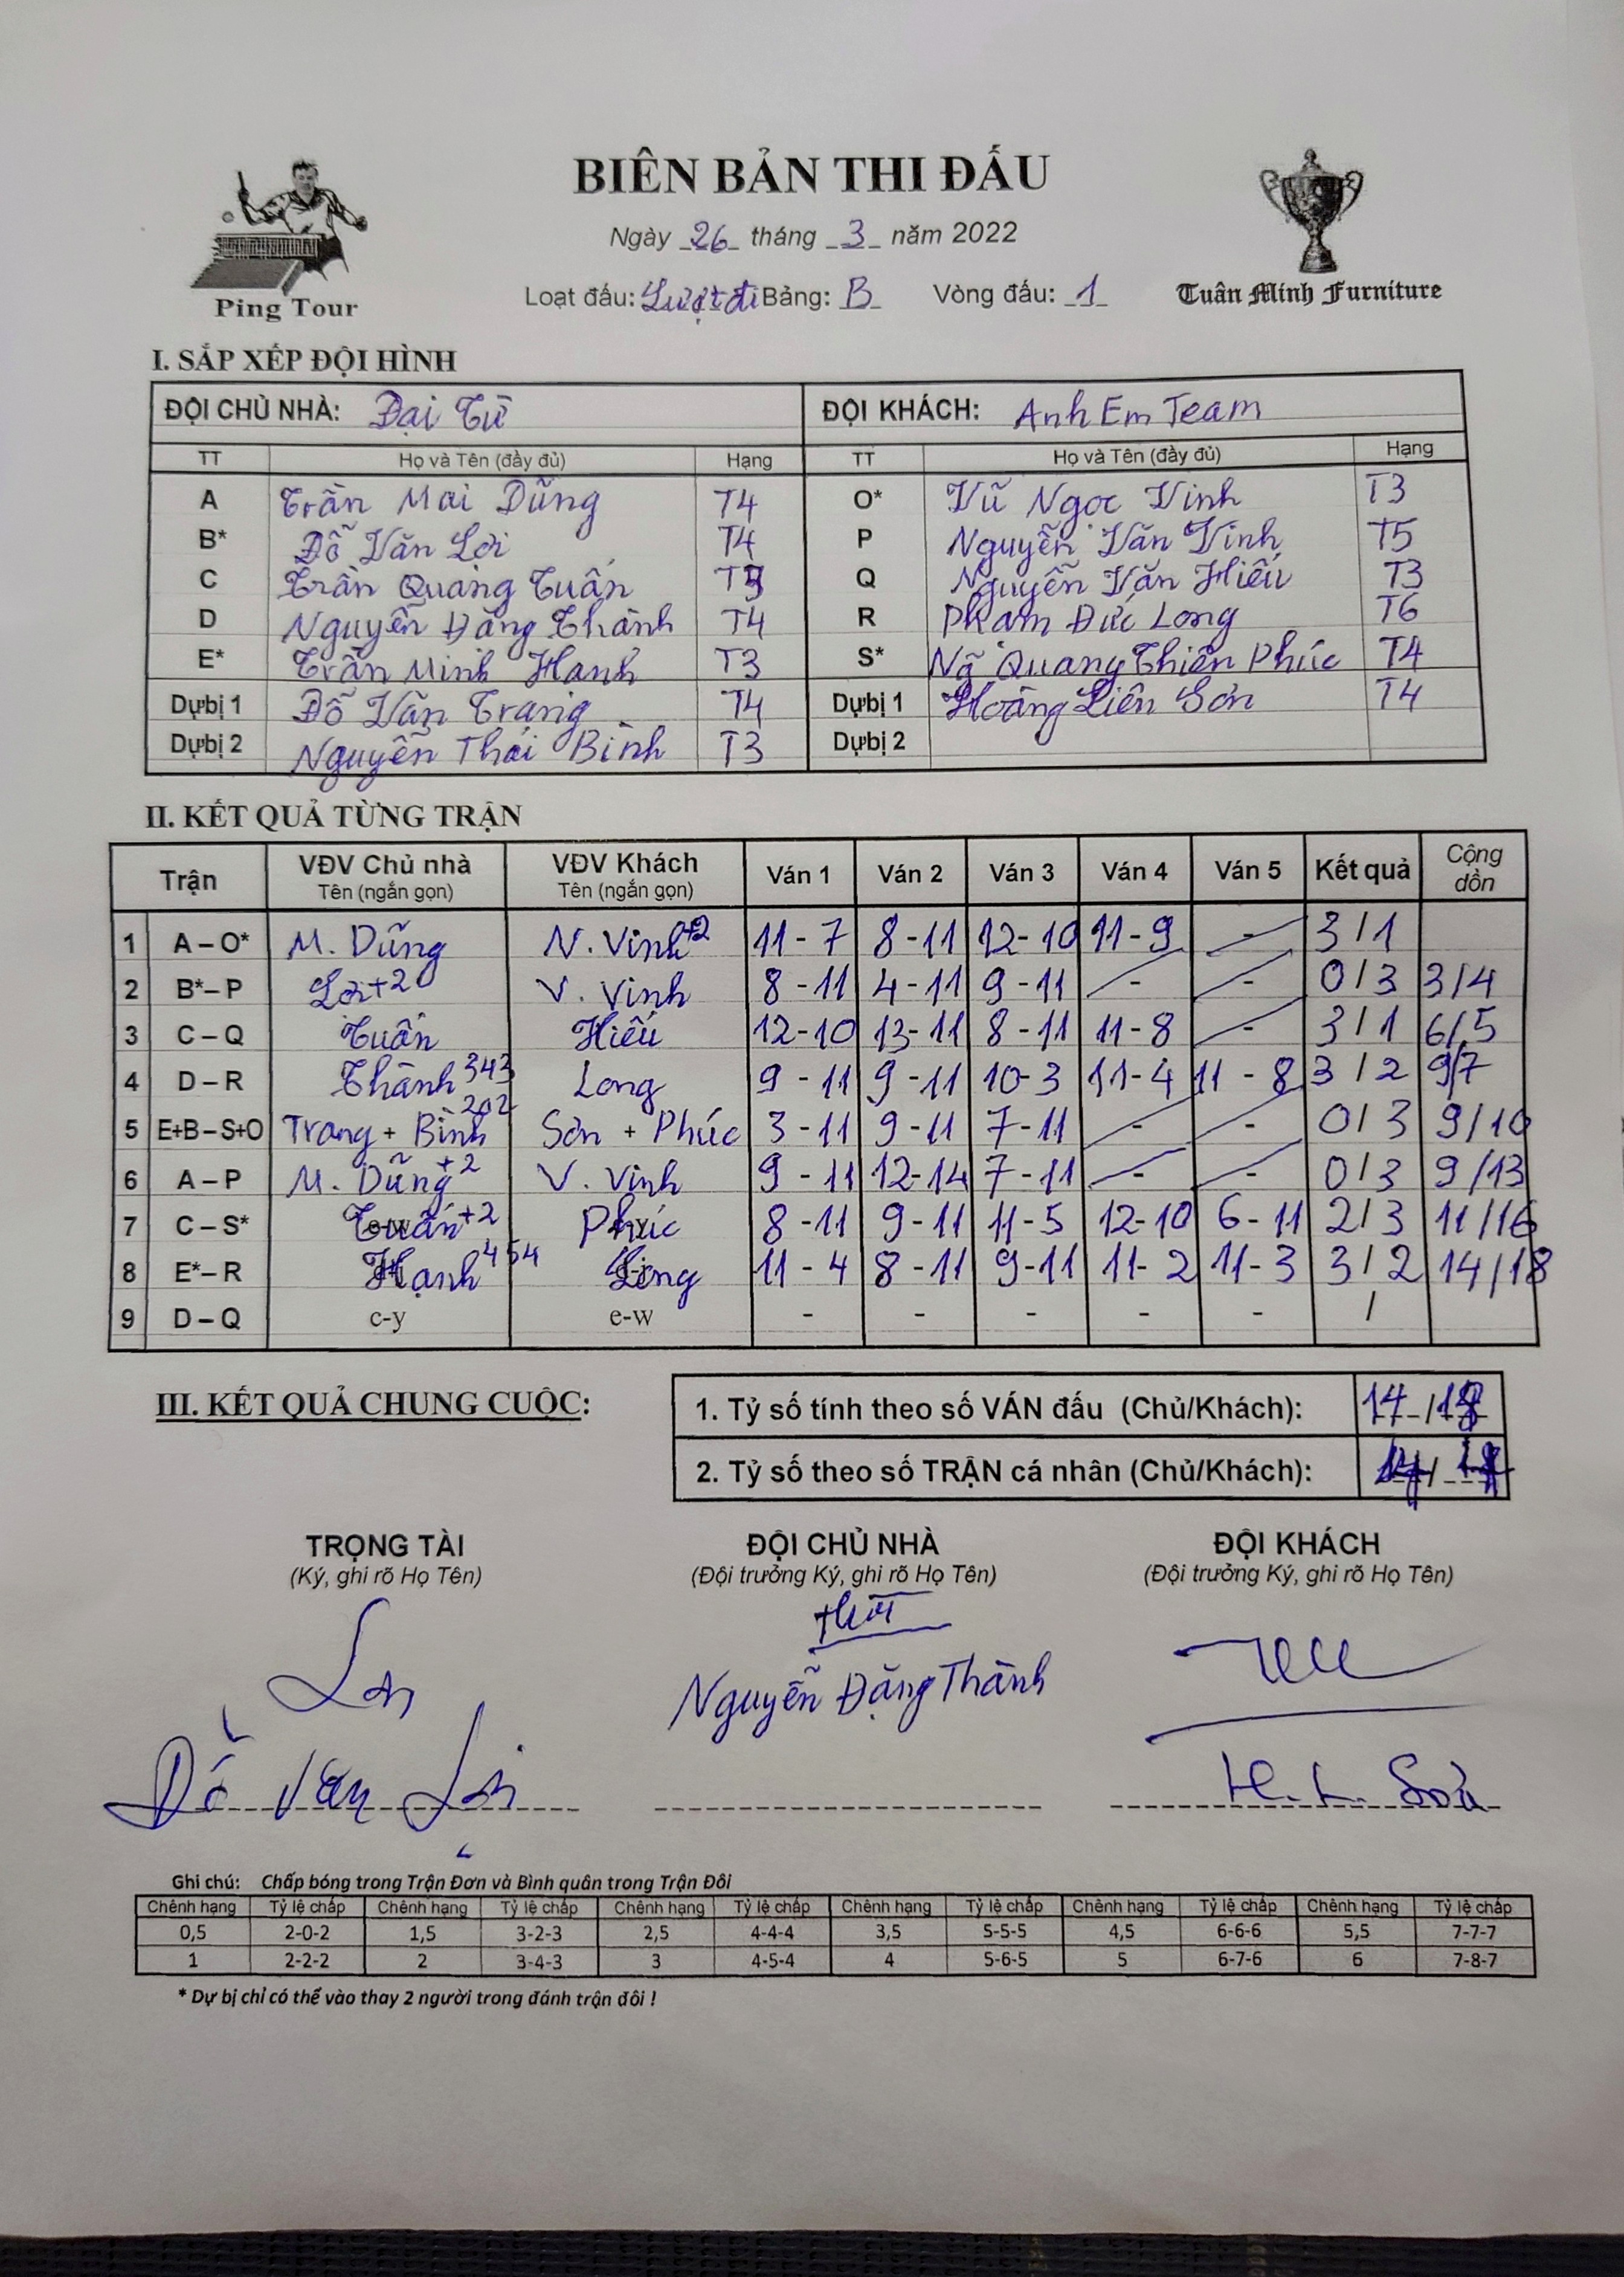 BIÊN BẢN THI ĐẤU
Ngày 26 tháng 3 năm 2022
Loạt đấu: Lượt đi Bảng: B Vòng đấu: 1
Ping Tour
Tuân Minh Furniture
I. SẮP XẾP ĐỘI HÌNH
ĐỘI CHỦ NHÀ: Đại Từ ĐỘI KHÁCH: Anh Em Team
TT Họ và Tên (đầy đủ) Hạng TT Họ và Tên (đầy đủ) Hạng
A Trần Mai Dũng T4 O* Vũ Ngọc Vinh T3
B* Đỗ Văn Lợi T4 P Nguyễn Văn Vinh T5
C Trần Quang Tuấn T3 Q Nguyễn Văn Hiếu T3
D Nguyễn Đăng Thành T4 R Phạm Đức Long T6
E* Trần Minh Hạnh T3 S* Ng Quang Thiên Phúc T4
Dự bị 1 Đỗ Văn Trang T4 Dự bị 1 Hoàng Liên Sơn T4
Dự bị 2 Nguyễn Thái Bình T3 Dự bị 2
II. KẾT QUẢ TỪNG TRẬN
Trận VĐV Chủ nhà VĐV Khách Ván 1 Ván 2 Ván 3 Ván 4 Ván 5 Kết quả Cộng dồn
Tên (ngắn gọn) Tên (ngắn gọn)
1 A – O* M. Dũng N. Vinh+2 11 - 7 8 - 11 12 - 10 11 - 9 - 3 / 1
2 B* – P Lợi+2 V. Vinh 8 - 11 4 - 11 9 - 11 - - 0 / 3 3/4
3 C – Q Tuấn Hiếu 12 - 10 13 - 11 8 - 11 11 - 8 - 3 / 1 6/5
4 D – R Thành 343 Long 9 - 11 9 - 11 10 - 3 11 - 4 11 - 8 3 / 2 9/7
5 E+B – S+O Trang + Bình 202 Sơn + Phúc 3 - 11 9 - 11 7 - 11 - - 0 / 3 9/10
6 A – P M. Dũng+2 V. Vinh 9 - 11 12 - 14 7 - 11 - - 0 / 3 9/13
7 C – S* Tuấn+2 Phúc 8 - 11 9 - 11 11 - 5 12 - 10 6 - 11 2 / 3 11/16
8 E* – R Hạnh 454 Long 11 - 4 8 - 11 9 - 11 11 - 2 11 - 3 3 / 2 14/18
9 D – Q c-y e-w - - - - - /
III. KẾT QUẢ CHUNG CUỘC:
1. Tỷ số tính theo số VÁN đấu (Chủ/Khách): 14 / 18
2. Tỷ số theo số TRẬN cá nhân (Chủ/Khách): /
TRỌNG TÀI ĐỘI CHỦ NHÀ ĐỘI KHÁCH
(Ký, ghi rõ Họ Tên) (Đội trưởng Ký, ghi rõ Họ Tên) (Đội trưởng Ký, ghi rõ Họ Tên)
Nguyễn Đăng Thành
Đỗ Văn Lợi H. L. Sơn
Ghi chú: Chấp bóng trong Trận Đơn và Bình quân trong Trận Đôi
Chênh hạng Tỷ lệ chấp Chênh hạng Tỷ lệ chấp Chênh hạng Tỷ lệ chấp Chênh hạng Tỷ lệ chấp Chênh hạng Tỷ lệ chấp Chênh hạng Tỷ lệ chấp
0,5 2-0-2 1,5 3-2-3 2,5 4-4-4 3,5 5-5-5 4,5 6-6-6 5,5 7-7-7
1 2-2-2 2 3-4-3 3 4-5-4 4 5-6-5 5 6-7-6 6 7-8-7
* Dự bị chỉ có thể vào thay 2 người trong đánh trận đôi !